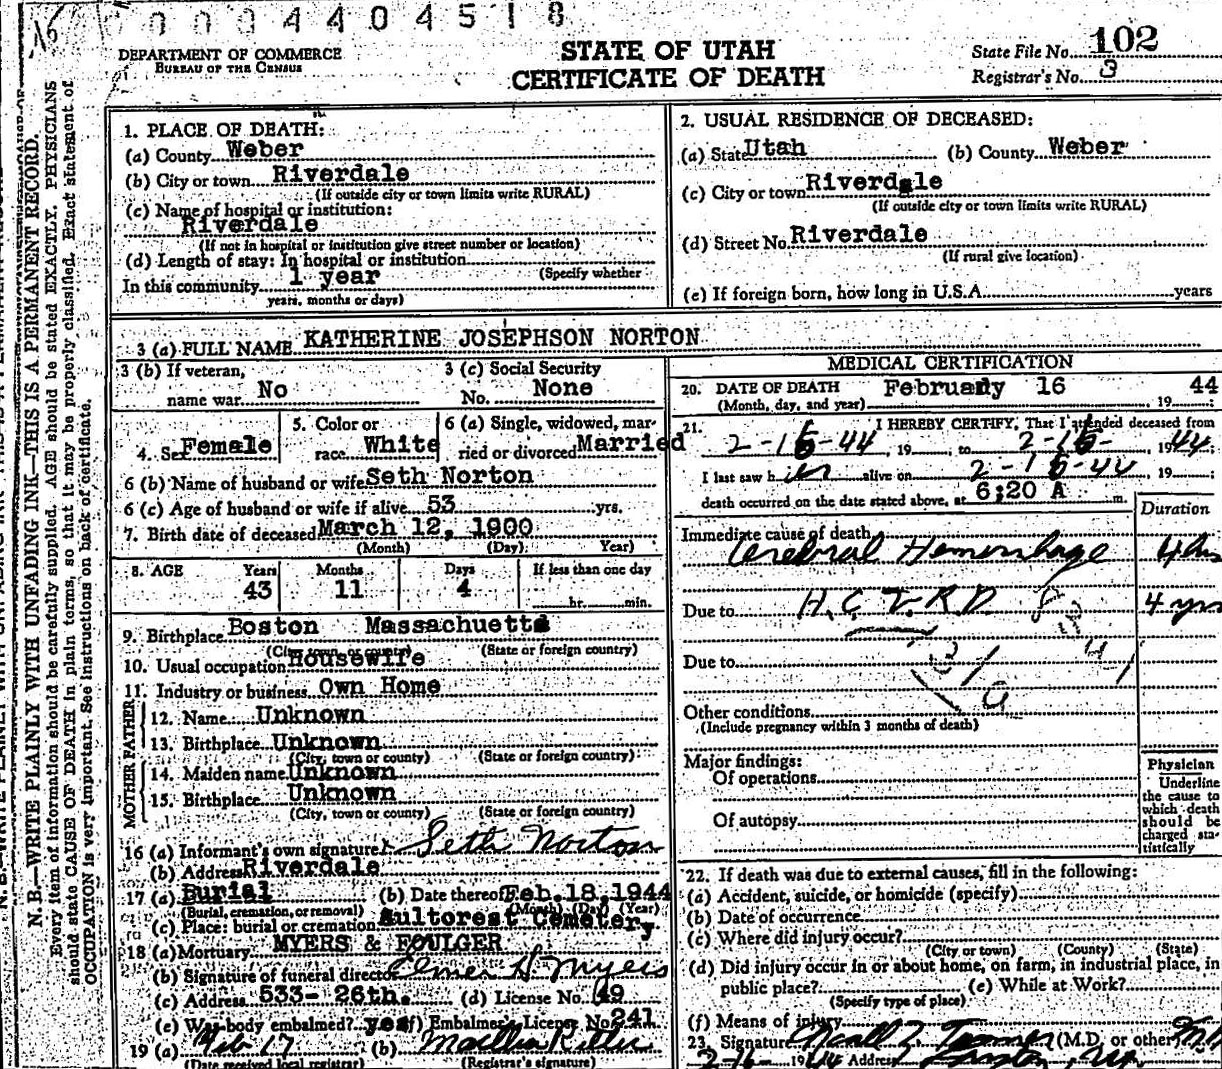 0004404518
DEPARTMENT OF COMMERCE
BUREAU OF THE CENSUS
STATE OF UTAH
CERTIFICATE OF DEATH
State File No. 102
Registrar's No. 3
N.B.—WRITE PLAINLY WITH UNFADING INK—THIS IS A PERMANENT RECORD.
Every item of information should be carefully supplied. AGE should be stated EXACTLY. PHYSICIANS
should state CAUSE OF DEATH in plain terms, so that it may be properly classified. Exact statement of
OCCUPATION is very important. See instructions on back of certificate.
1. PLACE OF DEATH:
(a) County Weber
(b) City or town Riverdale
(If outside city or town limits write RURAL)
(c) Name of hospital or institution:
Riverdale
(If not in hospital or institution give street number or location)
(d) Length of stay: In hospital or institution
(Specify whether
In this community 1 year
years, months or days)
2. USUAL RESIDENCE OF DECEASED:
(a) State Utah (b) County Weber
(c) City or town Riverdale
(If outside city or town limits write RURAL)
(d) Street No. Riverdale
(If rural give location)
(e) If foreign born, how long in U.S.A. years
3 (a) FULL NAME KATHERINE JOSEPHSON NORTON
3 (b) If veteran,
name war No
3 (c) Social Security
No. None
4. Sex Female
5. Color or
race White
6 (a) Single, widowed, mar-
ried or divorced Married
6 (b) Name of husband or wife Seth Norton
6 (c) Age of husband or wife if alive 53 yrs.
7. Birth date of deceased March 12, 1900
(Month) (Day) Year)
8. AGE Years Months Days If less than one day
43 11 4 hr. min.
9. Birthplace Boston Massachuetts
(City, town, or county) (State or foreign country)
10. Usual occupation Housewife
11. Industry or business Own Home
FATHER
12. Name Unknown
13. Birthplace Unknown
(City, town or county) (State or foreign country)
MOTHER
14. Maiden name Unknown
15. Birthplace Unknown
(City, town or county) (State or foreign country)
16 (a) Informant's own signature Seth Norton
(b) Address Riverdale
17 (a) Burial (b) Date thereof Feb. 18, 1944
(Burial, cremation, or removal) (Month) (Day) (Year)
(c) Place: burial or cremation Aultorest Cemetery
18 (a) Mortuary MYERS & FOULGER
(b) Signature of funeral director Elmer H. Myers
(c) Address 533- 26th. (d) License No. 49
(e) Was body embalmed? yes (f) Embalmer's License No. 241
19 (a) Feb 17 (b)
(Date received local registrar) (Registrar's signature)
MEDICAL CERTIFICATION
20. DATE OF DEATH February 16 19 44
(Month, day, and year)
21. I HEREBY CERTIFY, That I attended deceased from
2-16-44, 19 to 2-16, 1944
I last saw her alive on 2-16-44 19
death occurred on the date stated above, at 6:20 A m.
Duration
Immediate cause of death
Cerebral Hemorrhage 4 hrs
Due to H.C.V.R.D 4 yrs
Due to
Other conditions
(Include pregnancy within 3 months of death)
Major findings:
Of operations
Of autopsy
Physician
Underline
the cause to
which death
should be
charged sta-
tistically
22. If death was due to external causes, fill in the following:
(a) Accident, suicide, or homicide (specify)
(b) Date of occurrence
(c) Where did injury occur?
(City or town) (County) (State)
(d) Did injury occur in or about home, on farm, in industrial place, in
public place? (e) While at Work?
(Specify type of place)
(f) Means of injury
23. Signature (M.D. or other) M.D.
2-16- 1944 Address